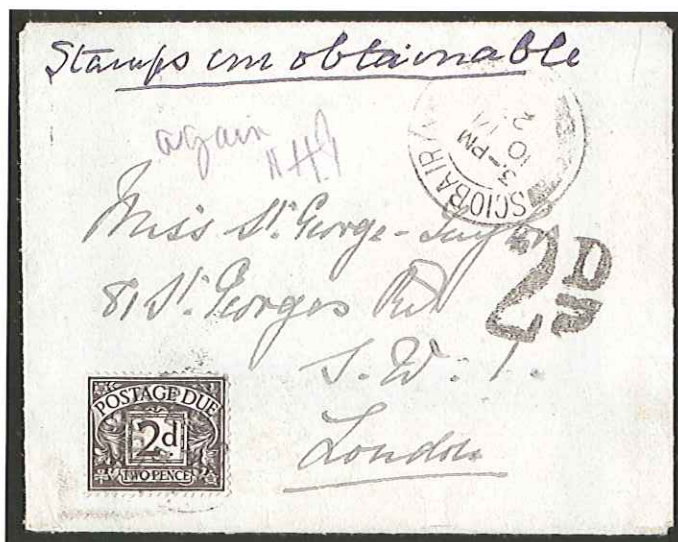 Stamps un obtainable
again
SCIOBAIRIN
3.-PM
10 VI
2
Miss St. George-
2D
81 St. Georges Rd
S. W. 1.
London
POSTAGE DUE
2d
TWO PENCE